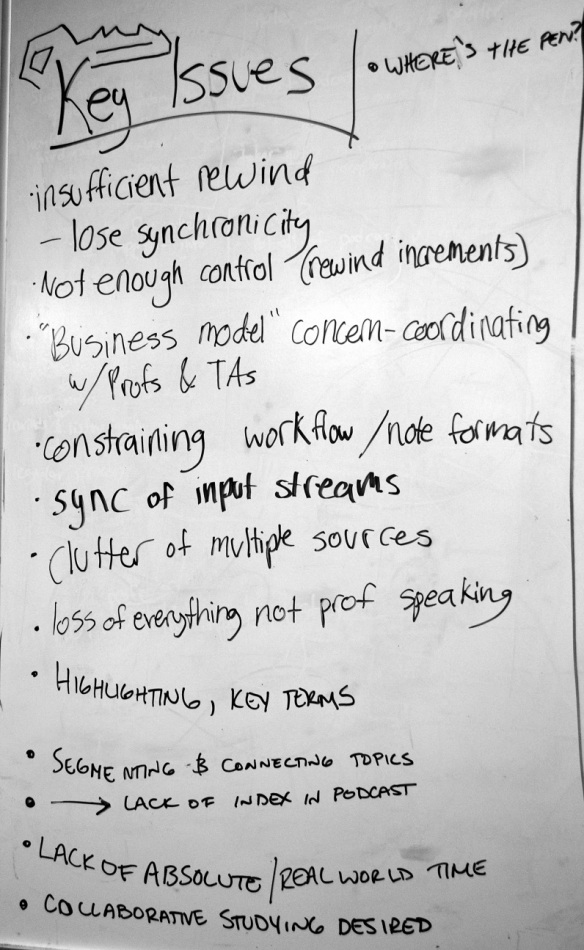 Key Issues
• WHERE'S THE PEN?
• insufficient rewind
– lose synchronicity
• Not enough control (rewind increments)
• "Business model" concern – coordinating
w/ Profs & TAs
• constraining workflow / note formats
• sync of input streams
• clutter of multiple sources
• loss of everything not prof speaking
• HIGHLIGHTING, KEY TERMS
• SEGMENTING & CONNECTING TOPICS
• → LACK OF INDEX IN PODCAST
• LACK OF ABSOLUTE / REAL WORLD TIME
• COLLABORATIVE STUDYING DESIRED